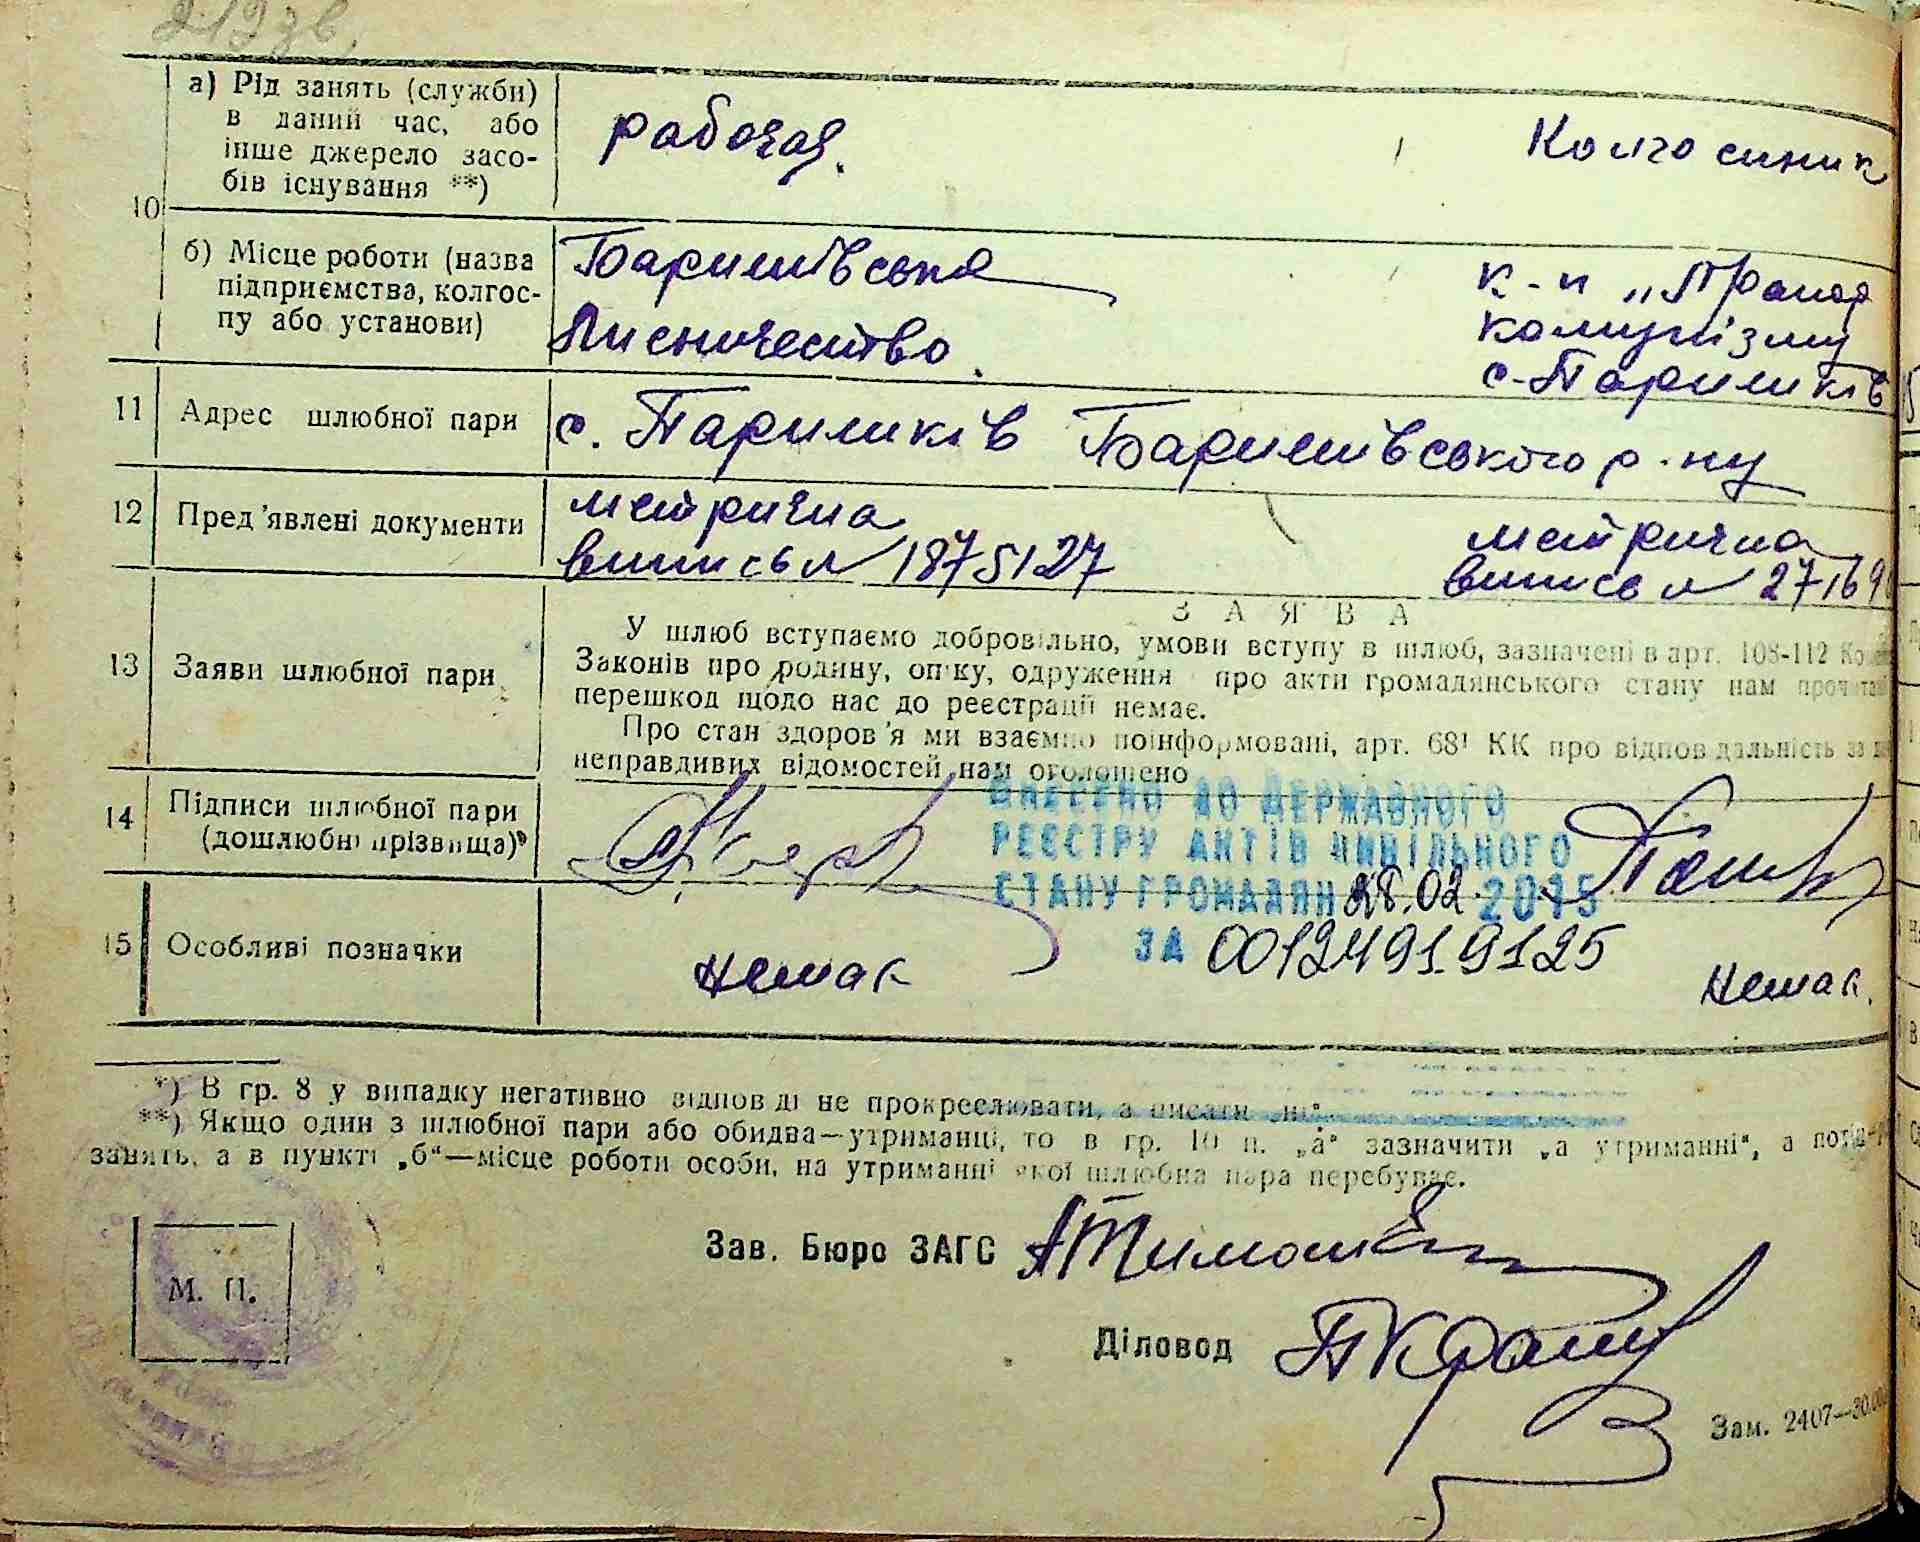 219 зв.
а) Рід занять (служби)
в даний час, або
інше джерело засо-
бів існування **)
рабочая.
Колгоспник
10
б) Місце роботи (назва
підприємства, колгос-
пу або установи)
Баришівська
Лисничество.
к-п „Прапор
комунізму
с. Паришків
11 Адрес шлюбної пари
с. Паришків Баришівського р-ну
12 Пред'явлені документи
метрична
випись № 1875127
метрична
випись № 27169
ЗАЯВА
13 Заяви шлюбної пари
У шлюб вступаємо добровільно, умови вступу в шлюб, зазначені в арт. 108-112
Законів про родину, опіку, одруження про акти громадянського стану нам
перешкод щодо нас до реєстрації немає.
Про стан здоров'я ми взаємно поінформовані, арт. 68¹ КК про відповідальність за
неправдивих відомостей нам оголошено
14 Підписи шлюбної пари
(дошлюбні прізвища)*
ВНЕСЕНО ДО ДЕРЖАВНОГО
РЕЄСТРУ АКТІВ ЦИВІЛЬНОГО
СТАНУ ГРОМАДЯН 28.02. 2015
ЗА 00124919125
15 Особливі позначки
Немає
Немає.
*) В гр. 8 у випадку негативно відповіді не прокреслювати, а писати „ні“.
**) Якщо один з шлюбної пари або обидва—утриманці, то в гр. 10 п. „а“ зазначити „а утриманні“, а
занять, а в пункті „б“—місце роботи особи, на утриманні якої шлюбна пара перебуває.
М. П.
Зав. Бюро ЗАГС
Діловод
Зам. 2407—30.00